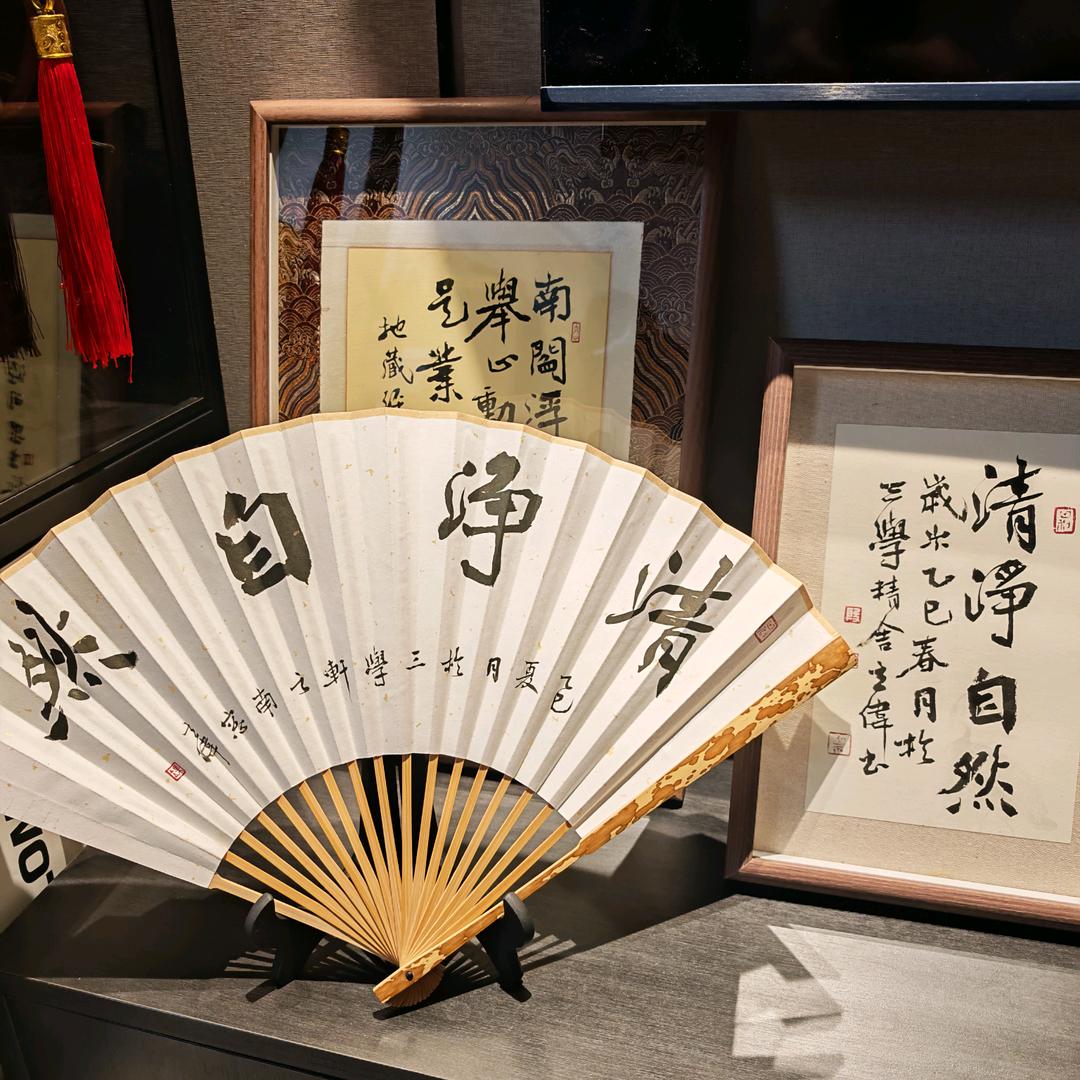 南閻浮
舉心動
是業
地藏經
清淨自然
乙巳夏月於三學軒之南窗
立偉
清淨自然
歲次乙巳春月於
三學精舍立偉書
NO.